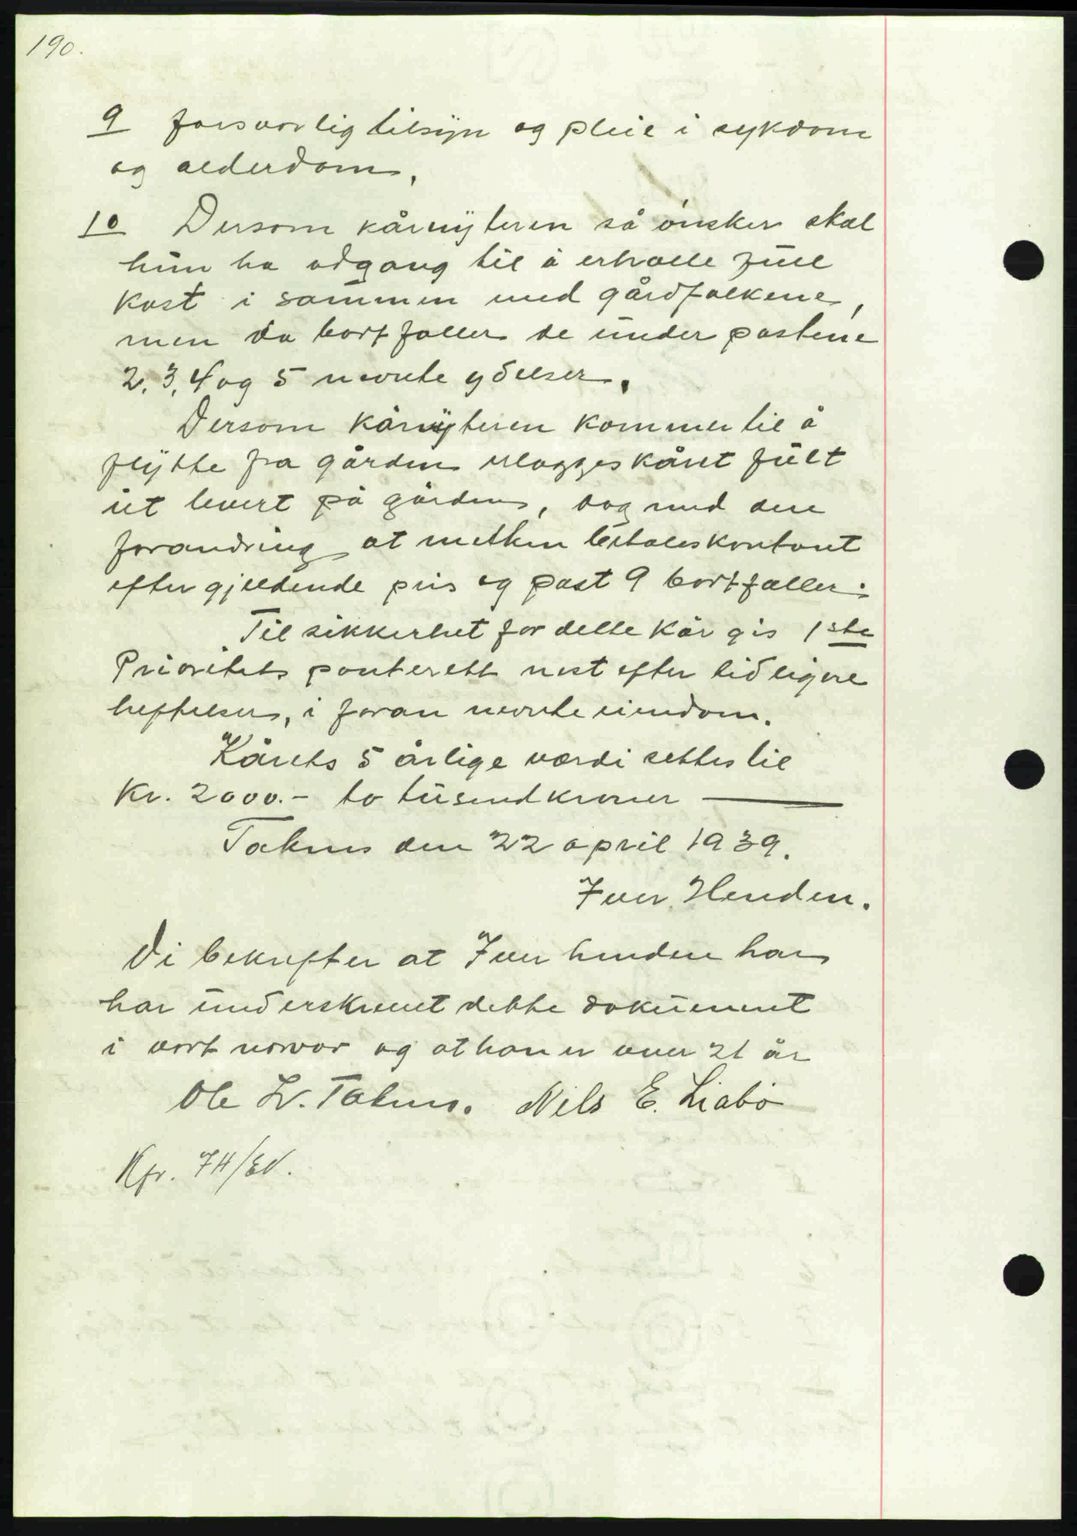 190.
9 forsvarlig tilsyn og pleie i sykdom
og alderdom.
10 Dersom kårnyteren så ønsker skal
hun ha adgang til å erholle full
kost i sammen med gårdfolkene,
men da bortfaller de under postene
2, 3, 4 og 5 nevnte ydelser.
Dersom kårnyteren kommer til å
flytte fra gården utlegges kåret fult
ut levert på gården, dog med den
forandring at melken betales kontant
efter gjeldende pris og post 9 bortfaller.
Til sikkerhet for dette kår gis 1ste
Prioritets panterett nest efter tidligere
heftelser, i foran nevnte eiendom.
Kårets 5 årlige verdi settes til
Kr. 2000.- to tusend kroner
Takus den 22 april 1939.
Iver Henden.
Vi bekrefter at Iver Henden har
har underskrevet dette dokument
i vort nervær og at han er over 21 år
Ole Takus. Nils E. Liabø
Kfr. 74/